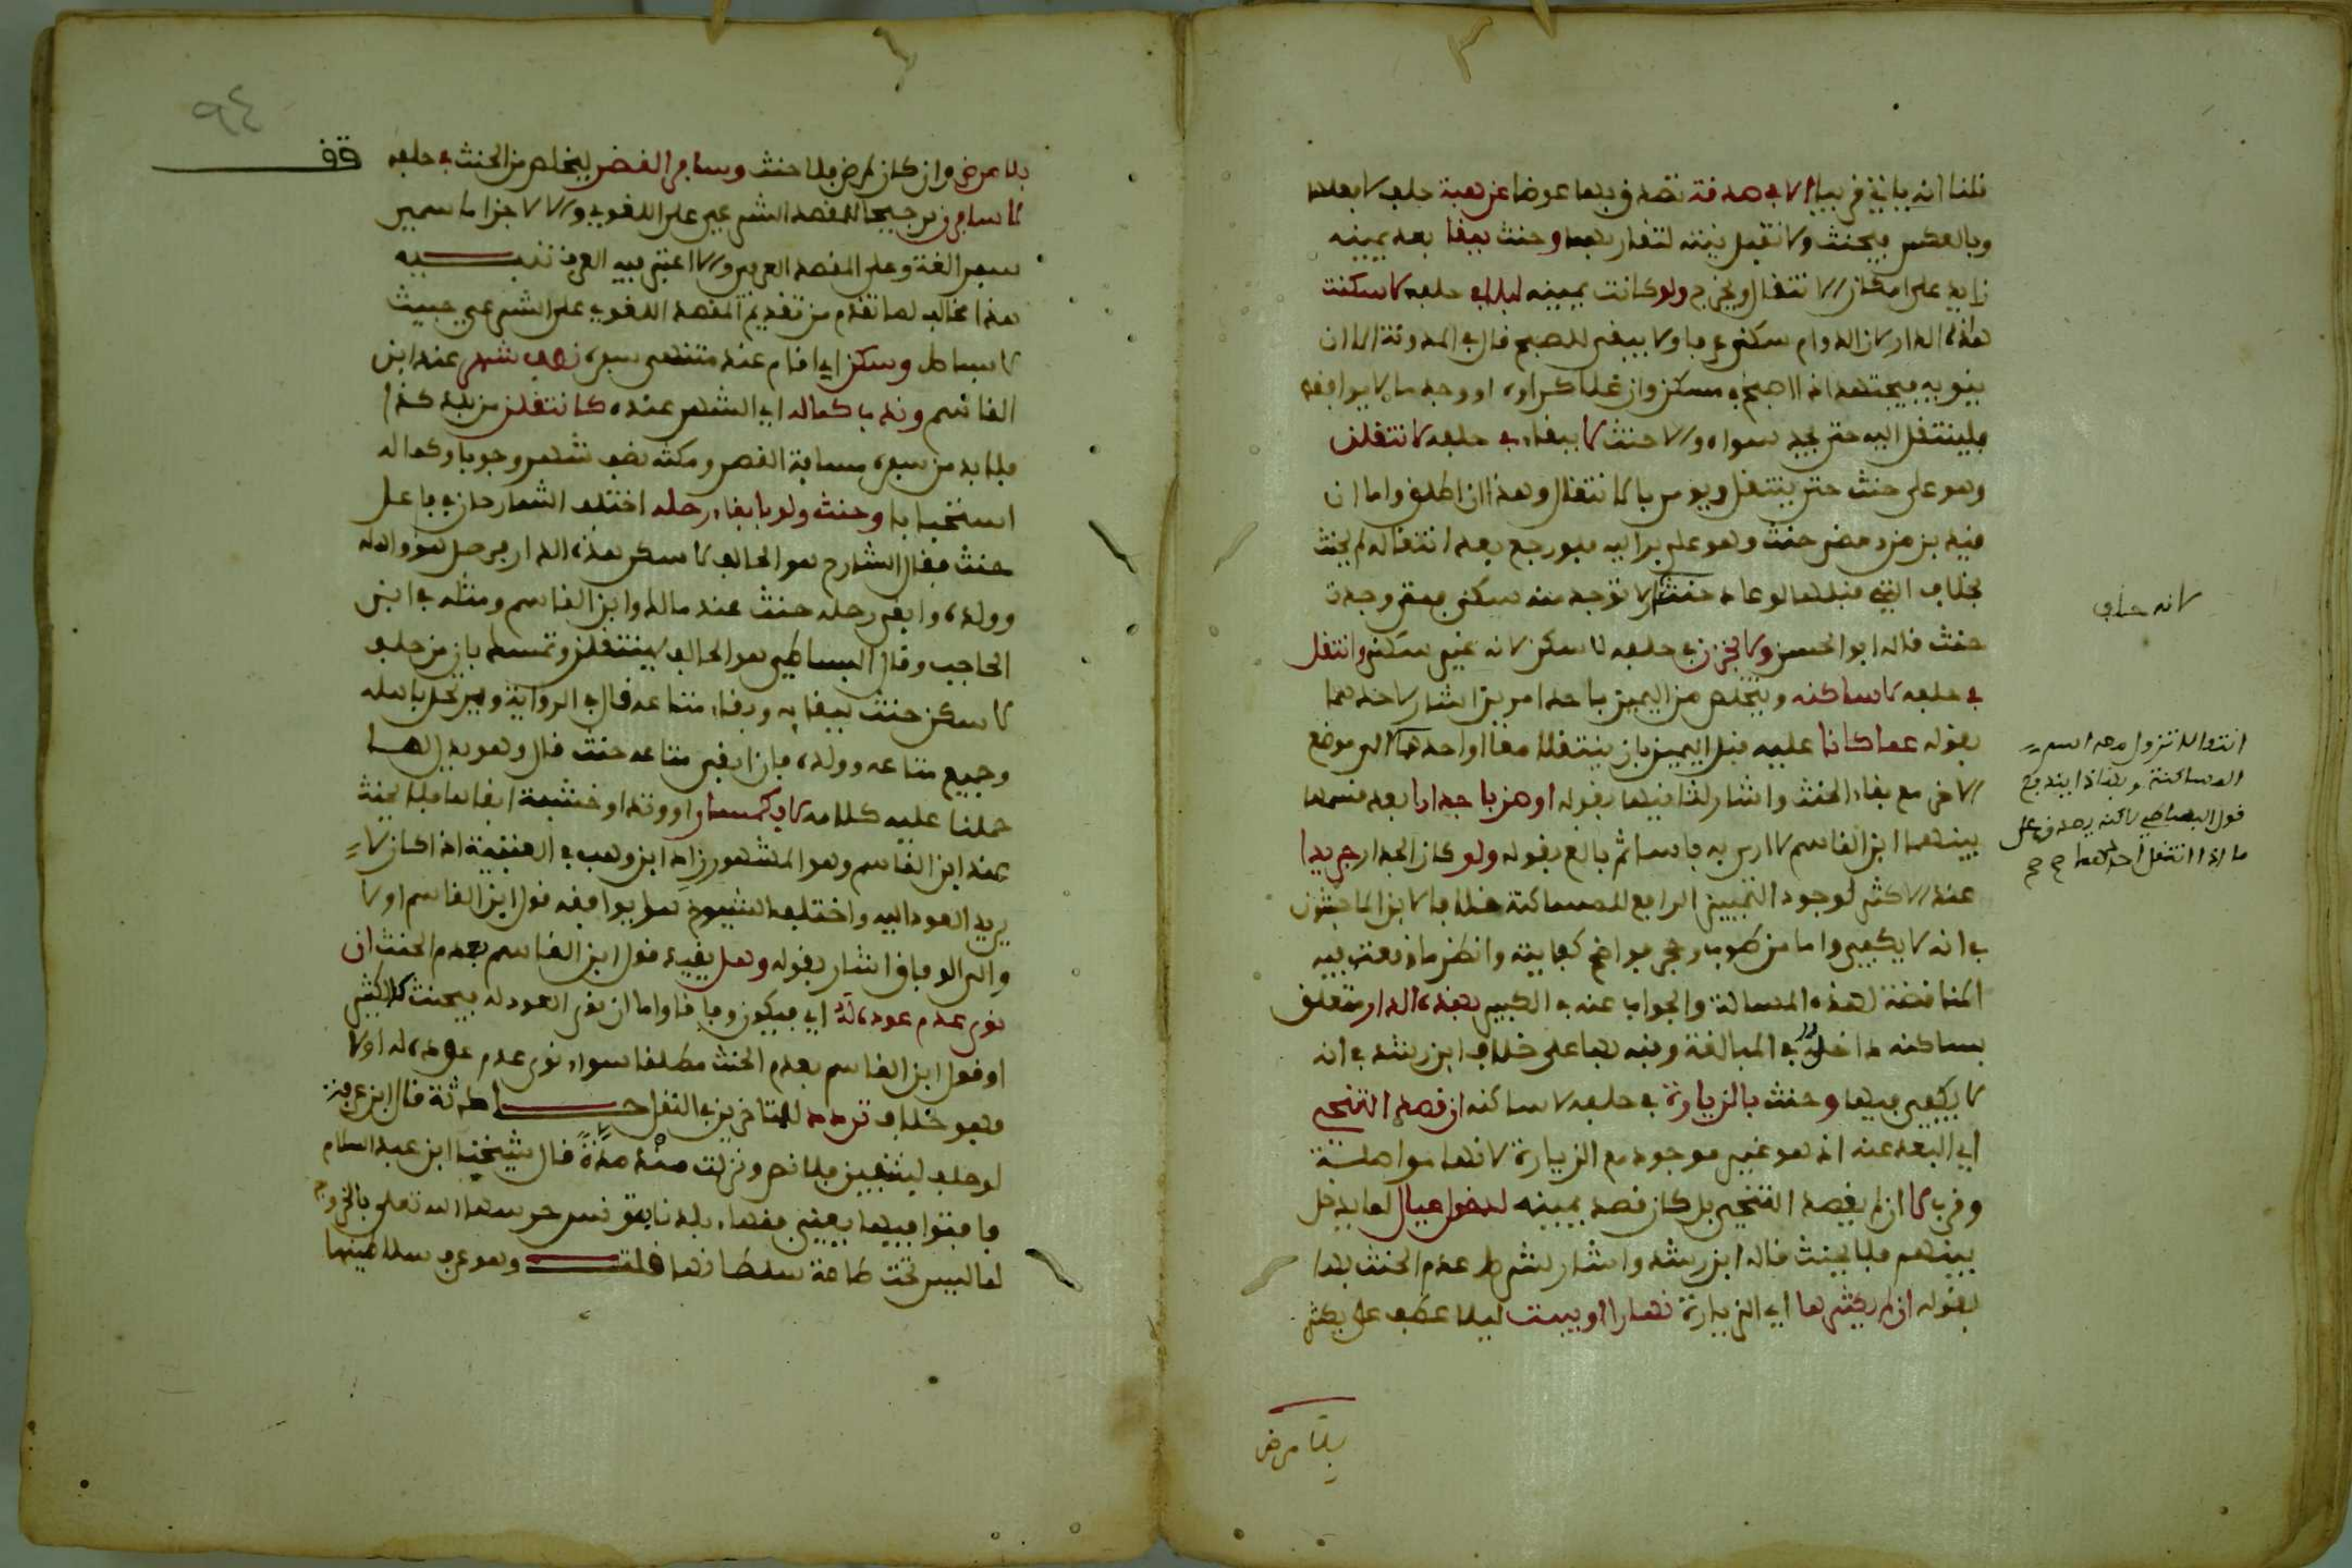 قلنا انه ياتي قريبا لا في صدقة تصدق بها عوضا عن هبة حلف لا يفعلها
وبالعكس فيحنث ولا تقبل نيته لتقاربهما وحنث ببقا بعد يمينه
زايد على امكان الانتقال ويخرج ولو كانت يمينه ليلا في حلفه لا سكنت
هذه الدار لان الدوام سكنى عرفا ولا يبقى للصبح قال في المدونة الا ان
ينويه فيجتهد اذا اصبح في مسكن وان غلا كراوه او وجد ما لا يوافقه
فلينتقل اليه حتى يجد سواه والا حنث لا ببقاء في حلفه لا نتقلن
وهو على حنث حتى ينتقل ويومر بالانتقال وهذا ان اطلق واما ان
قيد بزمن ومضى حنث وهو على بر اليه فلو رجع بعد انتقاله لم يحنث
بخلاف التي قبلها لو عاد حنث لا توجد منه سكنى فمتى وجدت
حنث قاله ابو الحسن ولا بخزن في حلفه لا سكن لانه غير سكنى وانتقل
في حلفه لا ساكنه ويتخلص من اليمين باحد امرين اشار لاحدهما
بقوله عما كانا عليه قبل اليمين بان ينتقلا معا او احدهما الى موضع
الاخر مع بقاء الحنث واشار لثانيهما بقوله او ضربا جدارا بعد قسمها
بينهما ابن القاسم لا ارى به باسا ثم بالغ بقوله ولو كان الجدار جريدا
عند الاكثر لوجود التمييز الرافع للمساكنة خلافا لابن الماجشون
في انه لا يكفي واما من طوب او حجر فواضح كفايته وانظر ما ذ فيه
المناقضة لهذه المسالة والجواب عنه في الكبير بهذه الدار متعلق
بساكنه داخل في المبالغة ونبه بها على خلاف ابن رشد في انه
لا يكفي فيها وحنث بالزيارة في حلفه لا ساكنه ان قصد التنحي
اي البعد عنه اذ هو غير موجود مع الزيارة لانها مواصلة
وقرب لا ان لم يقصد التنحي بل كان قصد يمينه لدخول عيال لما يدخل
بينهم فلا يحنث قاله ابن رشد واشار لشرط عدم الحنث بها
بقوله ان لم يكثرها اي الزيارة نهارا او يبت ليلا عطف على يكثر
بلا مرض
لانه حلف
انتقالا تزول معه اسم
المساكنة وبهذا يندفع
قول البساطي لاكنه يصدق على
ما اذا انتقل احدهما
٩٤
قف
بلا مرض وان كان لمرض فلا حنث وسافر القصر ليتخلص من الحنث في حلفه
لاسافرن ترجيحا للمقصد الشرعي على اللغوي والا لاجزا ما سمي
سفرا لغة وعلى المقصد العرفي والا اعتبر فيه العرف تنبيه
هذا مخالف لما تقدم من تقديم المقصد اللغوي على الشرعي حيث
لا بساط وسكن اي اقام عند منتهى سفره نصف شهر عند ابن
القاسم وندب كماله اي الشهر عنده كانتقلن من بلد كذا
فلا بد من سفره مسافة القصر ومكثه نصف شهر وجوبا وكماله
استحبابا وحنث ولو بابقاء رحله اختلف الشارحان في فاعل
حنث فقال الشارح هو الحالف لا سكن هذه الدار فرحل هو واهله
وولده وابقى رحله حنث عند مالك وابن القاسم ومثله في ابن
الحاجب وقال البساطي هو الحالف لينتقلن وتمسك بان من حلف
لا سكن حنث ببقا به وبقاء متاعه قال في الرواية ويرتحل باهله
وجميع متاعه وولده فان ابقى متاعه حنث قال وهو يدل لما
حملنا عليه كلامه لا بكمسمار او وتد او خشبة ابقاها فلا يحنث
عند ابن القاسم وهو المشهور زاد ابن وهب في العتبية اذا كان لا
يريد العود اليه واختلف الشيوخ هل يوافقه قول ابن القاسم اولا
والى الوفاق اشار بقوله وهل يقيد قول ابن القاسم بعدم الحنث ان
نوى عدم عوده له اي فيكون وفاقا واما ان نوى العود له فيحنث كالكثير
او قول ابن القاسم بعدم الحنث مطلقا سواء نوى عدم عوده له اولا
وهو خلاف تردد للمتاخرين في النقل حادثة قال ابن عرفة
لو حلف لينتقلن فلا نص ونزلت منذ مدة قال شيخنا ابن عبد السلام
فافتوا فيها يعني فقهاء بلدنا تونس حرسها الله تعلى بالخروج
لما ليس تحت طاعة سلطانها قلت وهو عرف سلاطينها